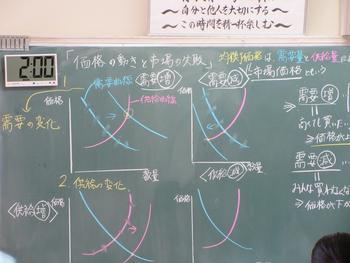 ～自分と他人を大切にする～
～この時間を精一杯楽しむ～
2:00
「価格の動きと市場の失敗」
均衡価格は、需要量と供給量
市場価格
1.
需要の変化
需要曲線
＜需要増＞
供給曲線
価格
数量
＜需要減＞
価格
数量
需要増
高くても買
⇒価格が
需要減
みんな買わない
⇒価格が下が
2. 供給の変化
＜供給増＞
価格
＜供給減＞
価格